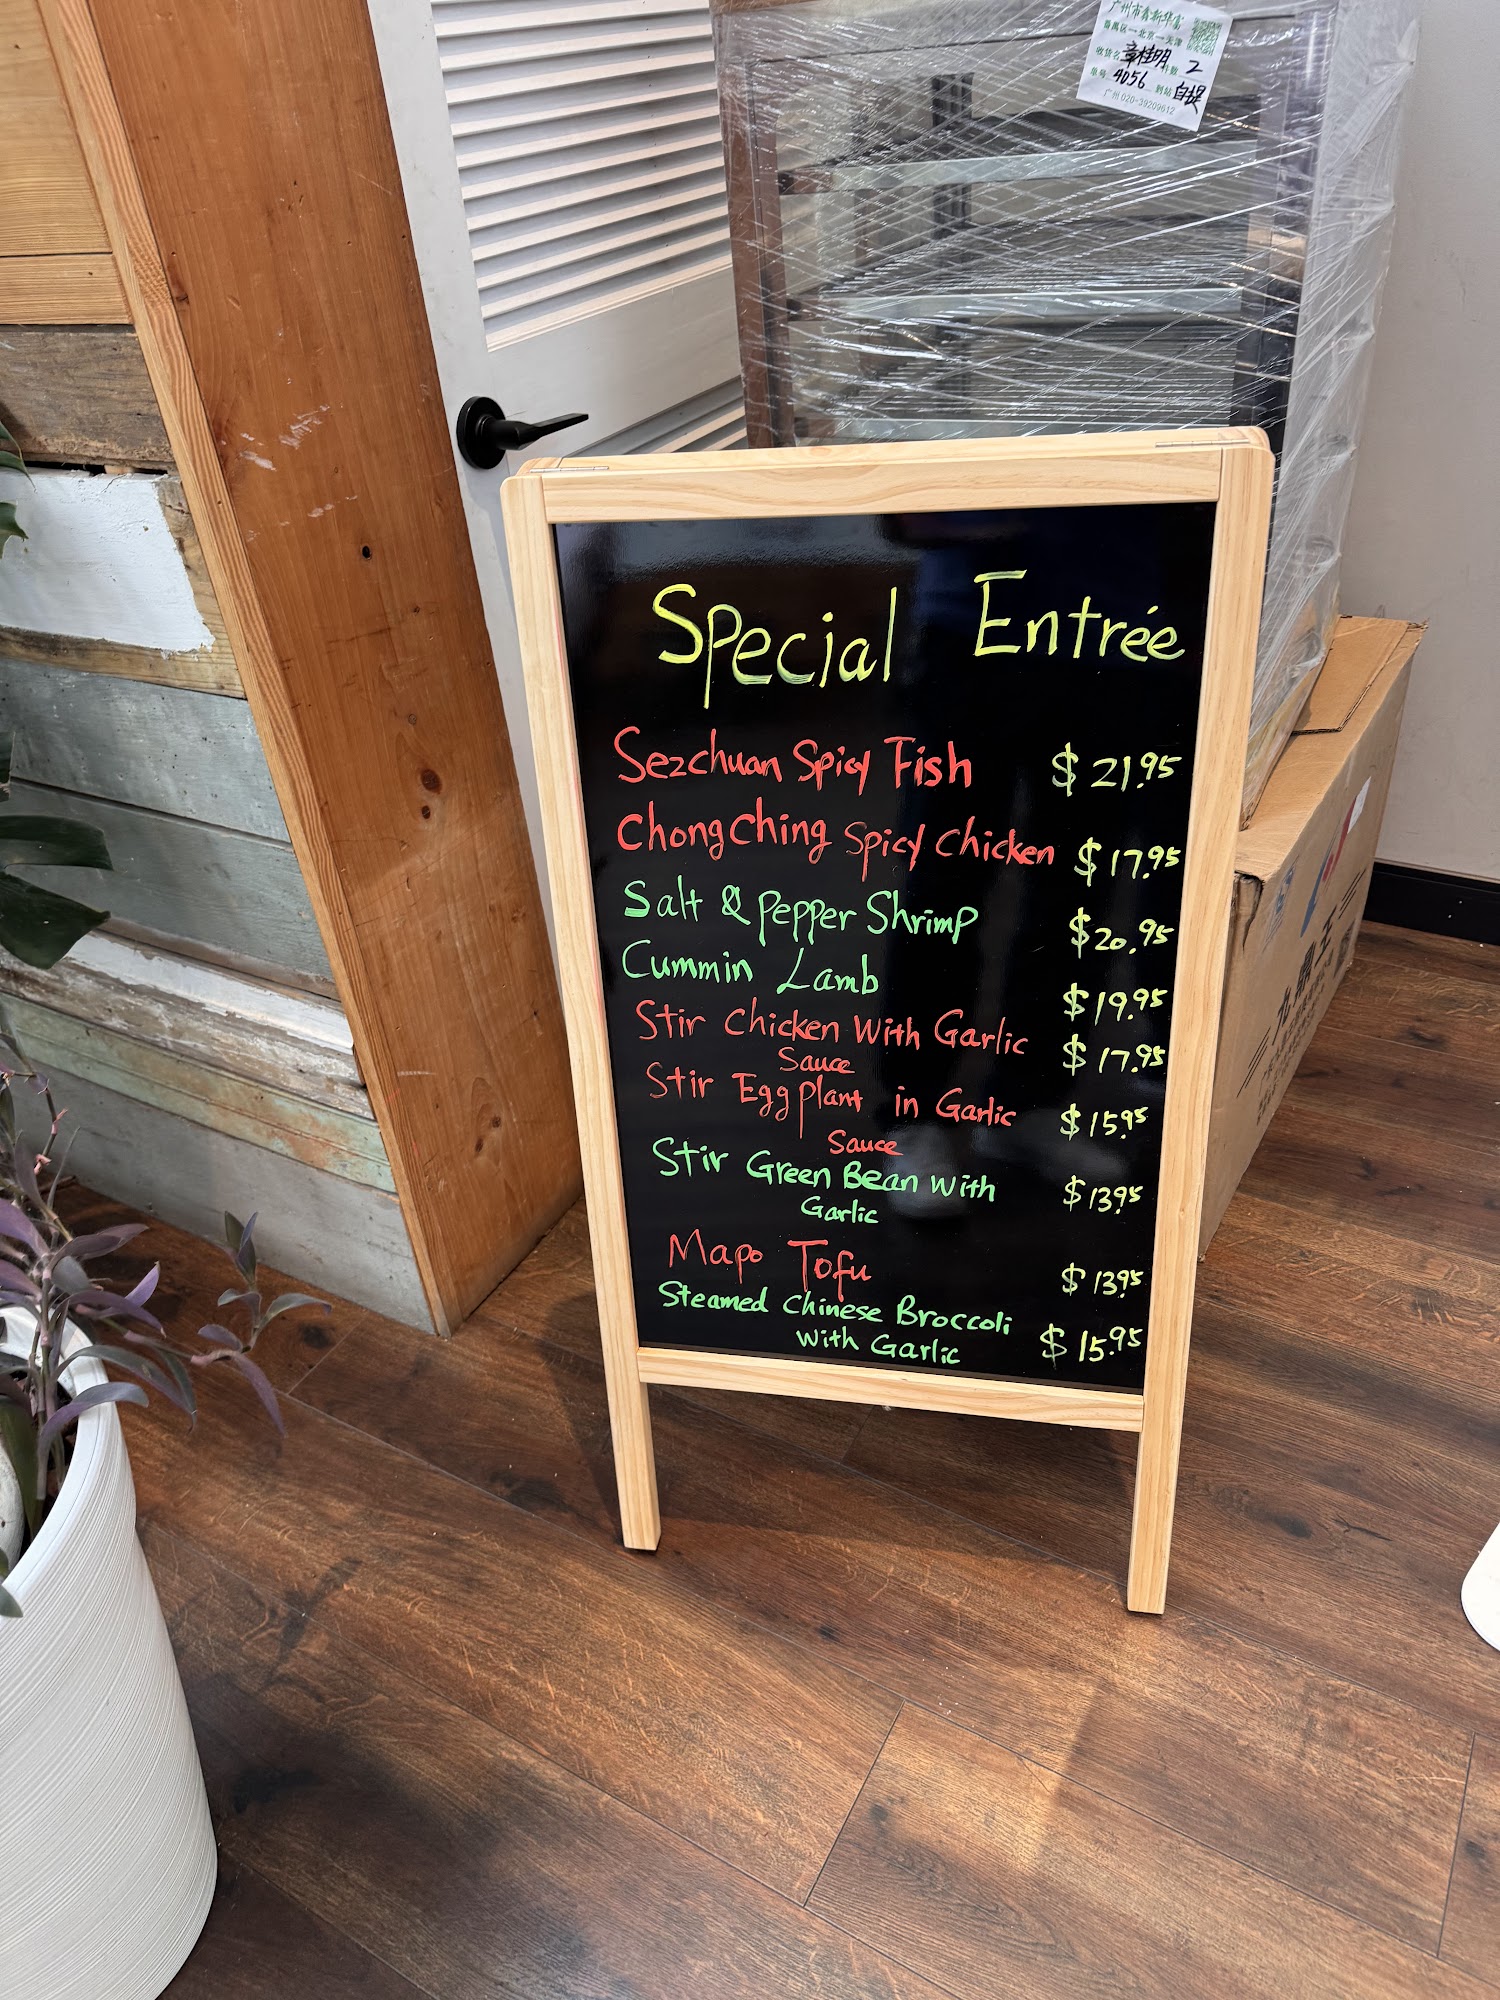 广州市鑫新华富
番禺区一北京一天津
收货名 章桂明 件数 2
单号 4056 到站 自提
广州 020-39209612
Special Entrée
Sezchuan Spicy Fish $21.95
ChongChing Spicy Chicken $17.95
Salt & Pepper Shrimp $20.95
Cummin Lamb $19.95
Stir Chicken With Garlic $17.95
Sauce
Stir Eggplant in Garlic $15.95
Sauce
Stir Green Bean With $13.95
Garlic
Mapo Tofu $13.95
Steamed Chinese Broccoli $15.95
With Garlic